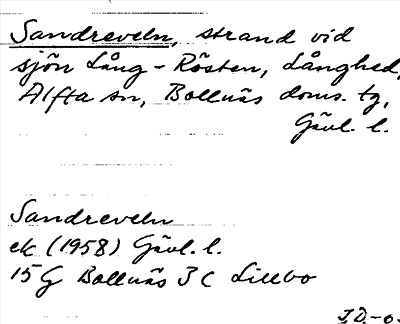 Sandreveln, strand vid
sjön Lång-Rösten, Långhed,
Alfta sn, Bollnäs doms. tg,
Gävl. l.
Sandreveln
ek (1958) Gävl. l.
15G Bollnäs 3c Lillbo